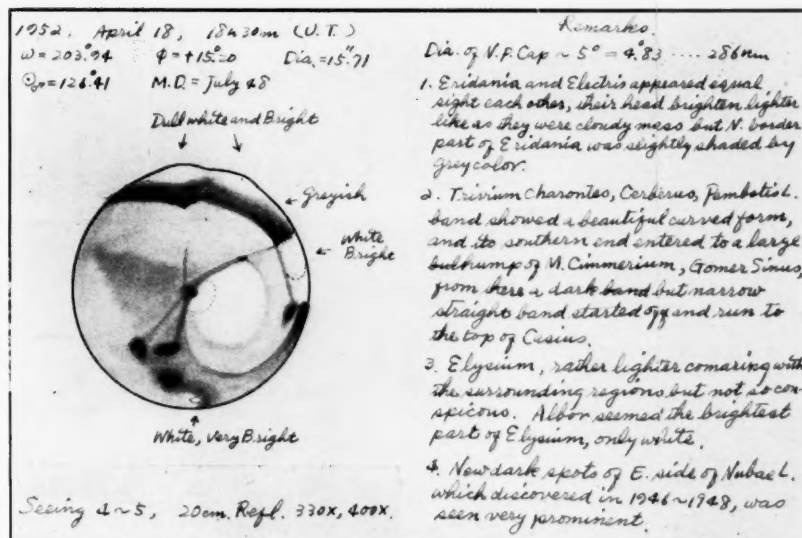 1952. April 18, 18h30m (U.T.)
ω=203°.94 Φ=+15°.0 Dia.=15".71
☉=126°.41 M.D.=July 28
Dull white and Bright
Greyish
White
Bright
White, very Bright
Seeing 4~5, 20cm. Refl. 330x, 400x.
Remarks.
Dia. of N.P. Cap ~ 5° = 4°.83 ..... 286 km
1. Eridania and Electris appeared equal
sight each other, their head brighten lighter
like as they were cloudy mass but N. border
part of Eridania was slightly shaded by
grey color.
2. Trivium Charontes, Cerberus, Pambotis L.
band showed a beautiful curved form,
and its southern end entered to a large
bulhump of M. Cimmerium, Gomer Sinus,
from here a dark band but narrow
straight band started off and run to
the top of Casius.
3. Elysium, rather lighter comaring with
the surrounding regions but not so con-
spicous. Albor seemed the brightest
part of Elysium, only white.
4. New dark spots of E. side of Nubae L.
which discovered in 1946~1948, was
seen very prominent.